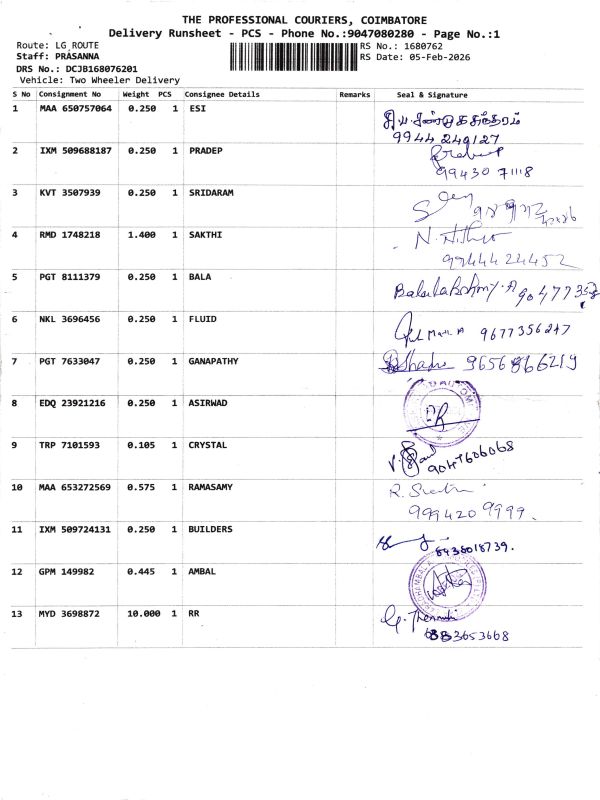 THE PROFESSIONAL COURIERS, COIMBATORE
Delivery Runsheet - PCS - Phone No.:9047080280 - Page No.:1
Route: LG ROUTE RS No.: 1680762
Staff: PRASANNA RS Date: 05-Feb-2026
DRS No.: DCJB168076201
Vehicle: Two Wheeler Delivery
S No Consignment No Weight PCS Consignee Details Remarks Seal & Signature
1 MAA 650757064 0.250 1 ESI
9944 249127
2 IXM 509688187 0.250 1 PRADEP
99430 71118
3 KVT 3507939 0.250 1 SRIDARAM
4 RMD 1748218 1.400 1 SAKTHI
9944424452
5 PGT 8111379 0.250 1 BALA
6 NKL 3696456 0.250 1 FLUID
9677356247
7 PGT 7633047 0.250 1 GANAPATHY
8 EDQ 23921216 0.250 1 ASIRWAD
9 TRP 7101593 0.105 1 CRYSTAL
9047606068
10 MAA 653272569 0.575 1 RAMASAMY
9994209999.
11 IXM 509724131 0.250 1 BUILDERS
8438018739.
12 GPM 149982 0.445 1 AMBAL
13 MYD 3698872 10.000 1 RR